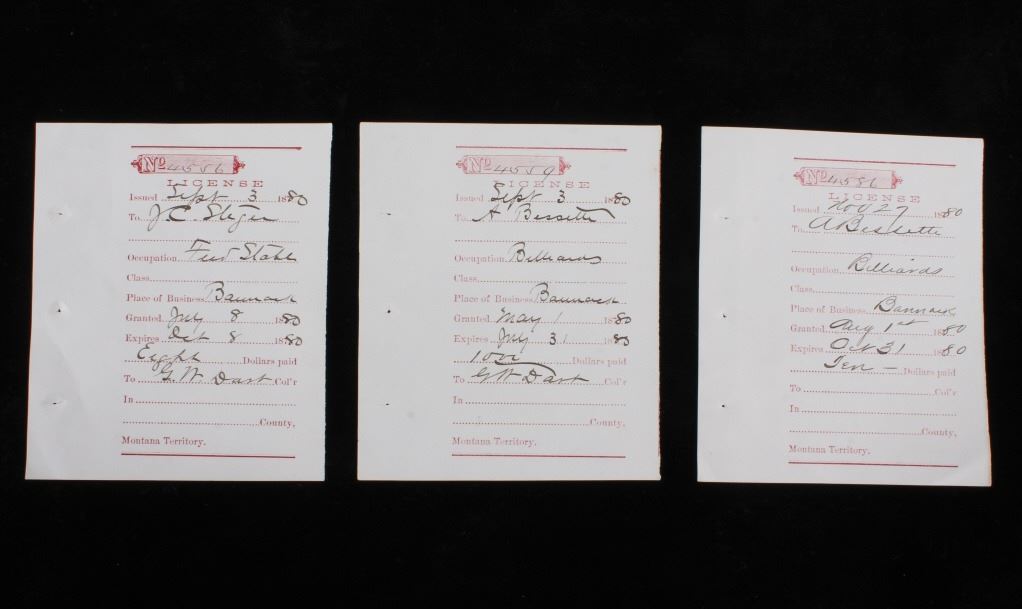 No 4556
LICENSE
Issued Sept 3 1880
To J C Steger
Occupation Feed Stable
Class
Place of Business Bannack
Granted July 8 1880
Expires Oct 8 1880
Eight Dollars paid
To G. W. Dart Col'r
In
County,
Montana Territory.
No 4559
LICENSE
Issued Sept 3 1880
To A Bessette
Occupation Billiards
Class
Place of Business Bannack
Granted May 1 1880
Expires July 31 1880
Dollars paid
To G W Dart Col'r
In
County,
Montana Territory.
No
LICENSE
Issued Nov 27 1880
To A Bessette
Occupation Billiards
Class
Place of Business Bannack
Granted Aug 1st 1880
Expires Oct 31 1880
Ten — Dollars paid
To Col'r
In
County,
Montana Territory.